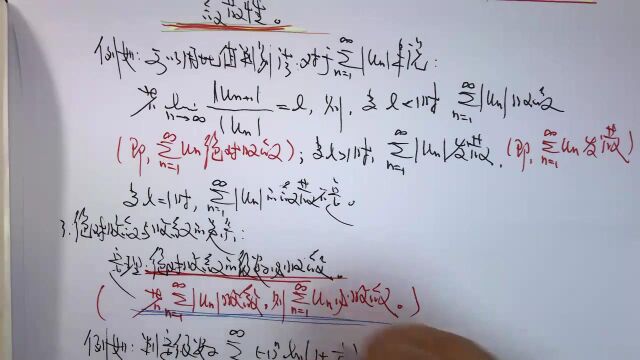 敛性。
例如:可以用比值判别法:对于∑_{n=1}^{∞}|u_n|来说:
若 lim_{n→∞} |u_{n+1}|/|u_n| = l, 则, 当 l<1时 ∑_{n=1}^{∞}|u_n| 收敛
(即, ∑_{n=1}^{∞} u_n 绝对收敛); 当 l>1时, ∑_{n=1}^{∞}|u_n| 发散. (即, ∑_{n=1}^{∞} u_n 发散)
当 l=1时, ∑_{n=1}^{∞}|u_n| 敛散不定。
3. 绝对收敛与收敛的关系:
定理:绝对收敛的级数必收敛.
(若∑_{n=1}^{∞}|u_n|收敛, 则∑_{n=1}^{∞} u_n 必收敛。)
例如:判定级数 ∑^{∞} (-1)^n ln(1+